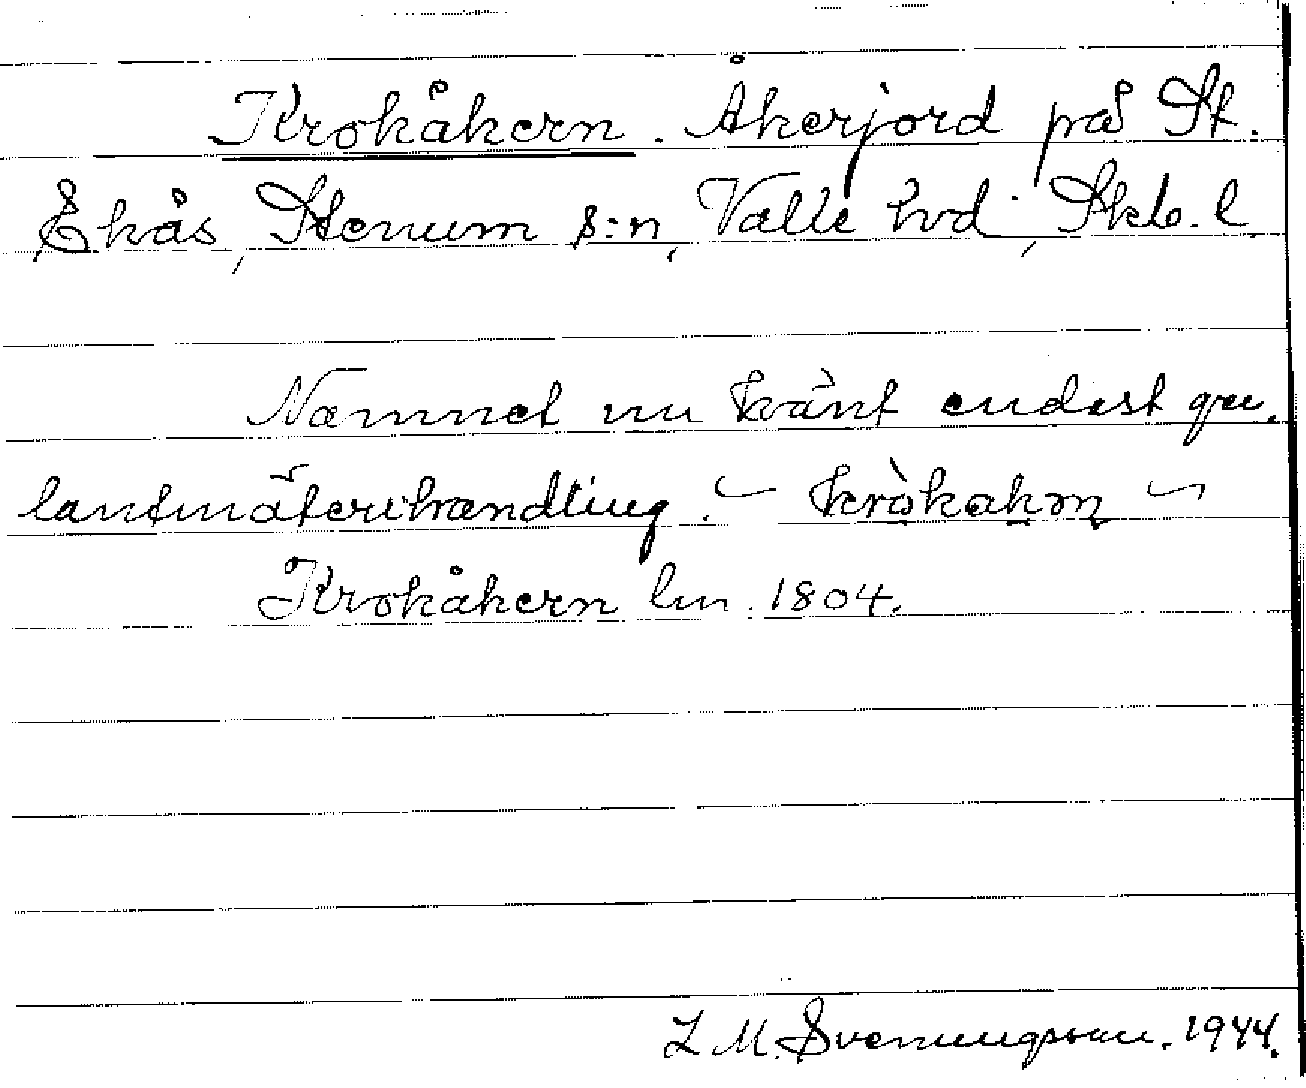 Krokåkern. Åkerjord på St.
Ekås, Stenum s:n, Valle hd, Skb. l.
Namnet nu känt endast gm.
lantmäterihandling. ~ kròkakɘn ~
Krokåkern lm. 1804.
L M. Svenungsson. 1944.